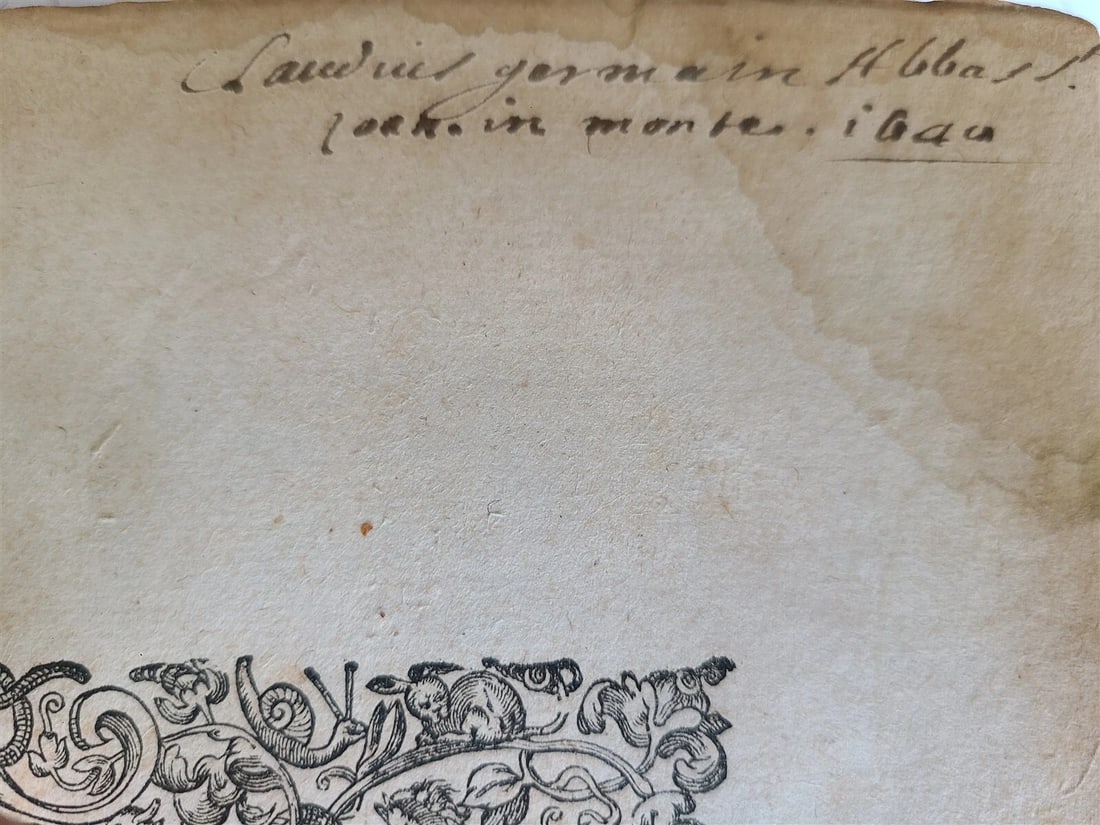 Claudius germain Abbas S.
Joan. in monte. 1640